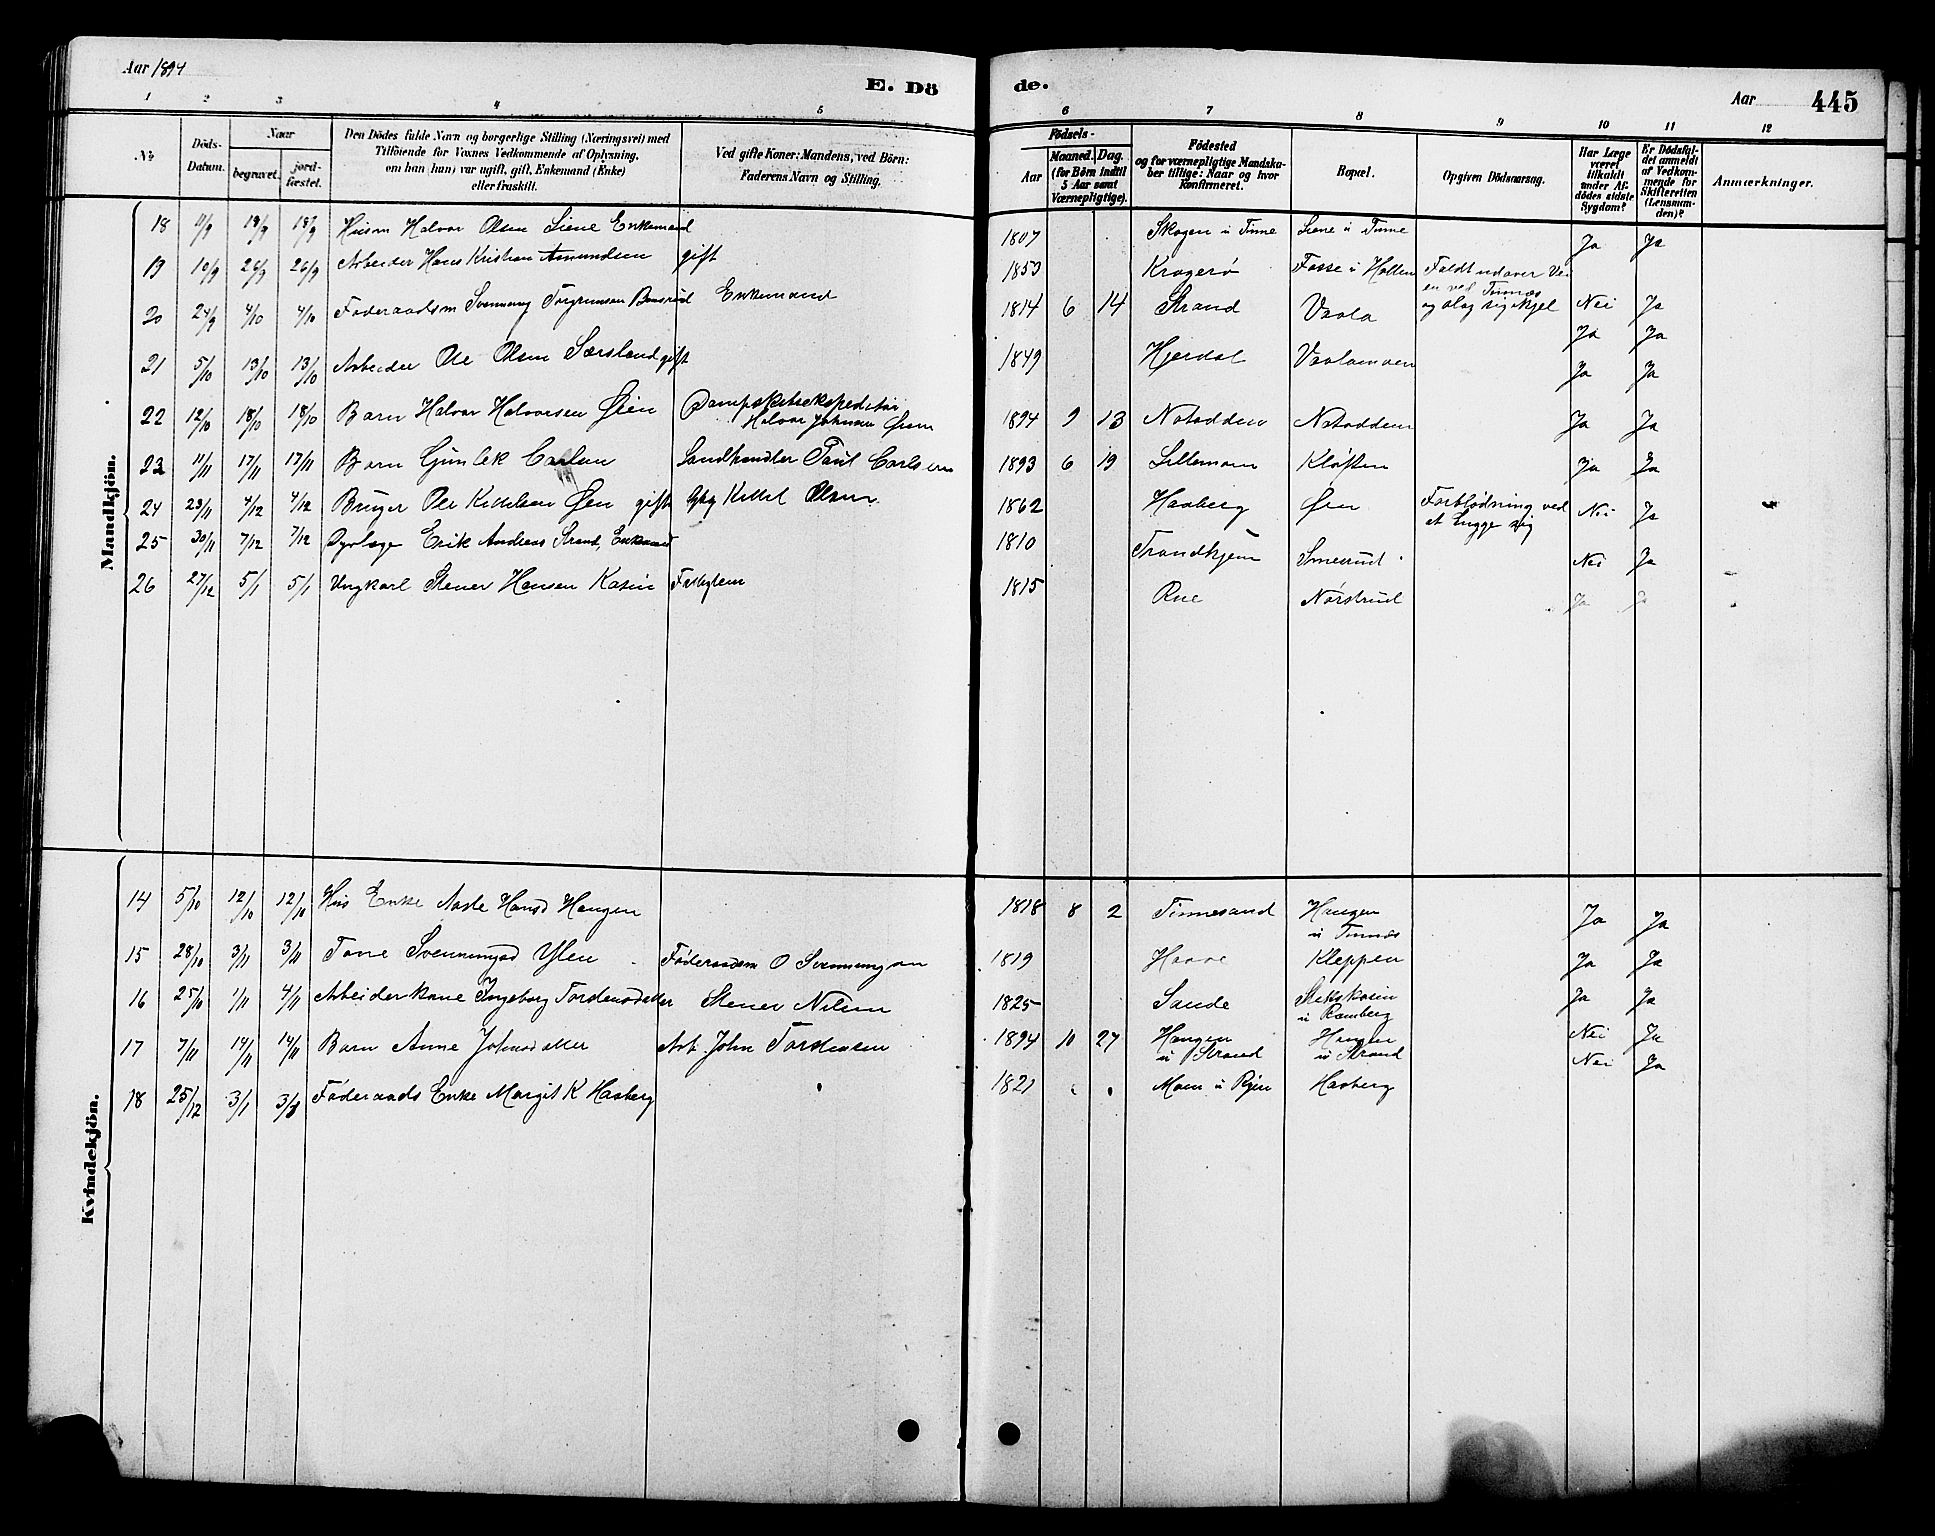 Aar 1894
E. Dö
de.
Aar
445
1 2 3 4 5 6 7 8 9 10 11 12
No
Döds-Datum.
Naar
begravet.
jordfæstet.
Den Dödes fulde Navn og borgerlige Stilling (Næringsvei) med
Tilföiende for Voxnes Vedkommende af Oplysning,
om han (hun) var ugift, gift, Enkemand (Enke)
eller fraskilt.
Ved gifte Koner: Mandens, ved Börn:
Faderens Navn og Stilling.
Födsels-
Aar
Maaned. Dag.
(for Börn indtil
5 Aar samt
Værnepligtige).
Födested
og for værnepligtige Mandska-
ber tillige: Naar og hvor
Konfirmeret.
Bopæl.
Opgiven Dödsaarsag.
Har Læge
været
tilkaldt
under Af-
dödes sidste
Sygdom?
Er Dödsfal-
det anmeldt
af Vedkom-
mende for
Skifteretten
(Lensman-
den)?
Anmærkninger.
Mandkjön.
18 11/9 19/9 18/9 Husm Halvor Olsen Liene Enkemand 1807 Skogen i Tinne Liene i Tinne Ja Ja
19 10/9 26/9 26/9 Arbeider Hans Kristian Amundsen gift 1853 Kragerø Fosse i Hollen Faldt udover Vei-
en ved Tinnæs
og slog sig ihjel Nei Ja
20 24/9 4/10 4/10 Föderaadsm Svennung Torgrimsen Enkemand 1814 6 14 Strand Vaala Ja Ja
21 5/10 13/10 13/10 Arbeider Ole Olsen Særsland gift 1849 Hjerdal Vaalamoen Ja Ja
22 12/10 18/10 18/10 Barn Halvor Halvorsen Øien Dampskibsekspeditör
Halvor Johnsen 1894 9 13 Notodden Notodden Ja Ja
23 11/11 17/11 17/11 Barn Gunlek Carlsen Landhandler Paul Carlsen 1893 6 19 Lillemoen Kløften Ja Ja
24 23/11 4/12 4/12 Bruger Ole Kittelsen Øen gift Gbg Kittel Olsen 1862 Haaberg Øen Forblødning ved
at hugge sig Nei Ja
25 30/11 7/12 7/12 Dyrlæge Erik Andreas Strand, Enkemand 1810 Trondhjem Smerud Nei Ja
26 27/12 5/1 5/1 Ungkarl Stener Hansen Kasin Fattiglem 1815 Rue Nørstrud Ja Ja
Kvindekjön.
14 5/10 12/10 12/10 Hus Enke Aaste Hansd Haugen 1818 8 2 Tinnesand Haugen
i Tinnæs Ja Ja
15 28/10 3/11 3/11 Tone Svennungsd Ylen Föderaadsm O Svennungsen 1819 Haave Kleppen Ja Ja
16 25/10 1/11 4/11 Arbeiderkone Ingeborg Tordensdatter Stener Nilsen 1825 Sande
i Ramberg Ja Ja
17 7/11 14/11 14/11 Barn Anne Johnsdatter Arb. John Torstensen 1894 10 27 Haugen
i Strand Haugen
i Strand Nei Ja
18 25/12 3/1 3/1 Föderaads Enke Margit K Haaberg 1821 Moen i Haaberg Nei Ja